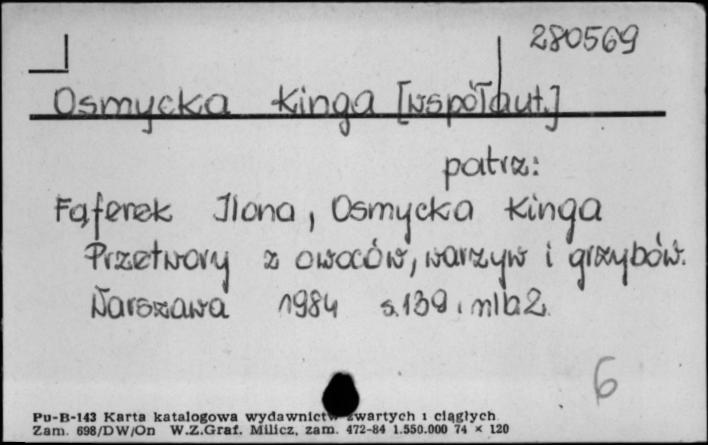 280569
Osmycka Kinga [współaut.]
patrz:
Fąferek Ilona, Osmycka Kinga
Przetwory z owoców, warzyw i grzybów.
Warszawa 1984 s.139, nlb 2
6
Pu-B-143 Karta katalogowa wydawnictw zwartych i ciągłych
Zam. 698/DW/On W.Z.Graf. Milicz, zam. 472-84 1.550.000 74 × 120